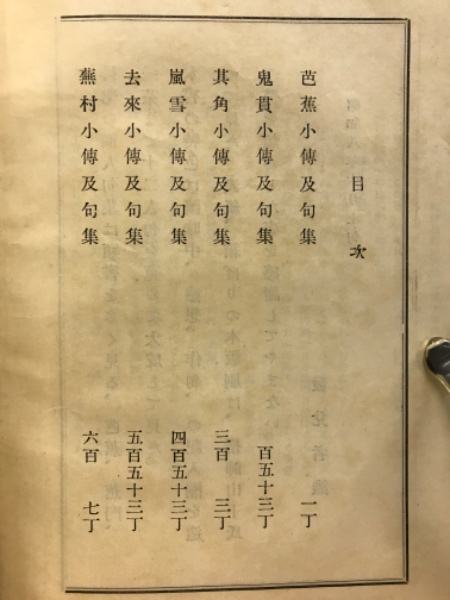 目次
芭蕉小傳及句集 一丁
鬼貫小傳及句集 百五十三丁
其角小傳及句集 三百三丁
嵐雪小傳及句集 四百五十三丁
去來小傳及句集 五百五十三丁
蕪村小傳及句集 六百七丁